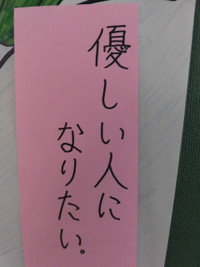 優しい人に
なりたい。